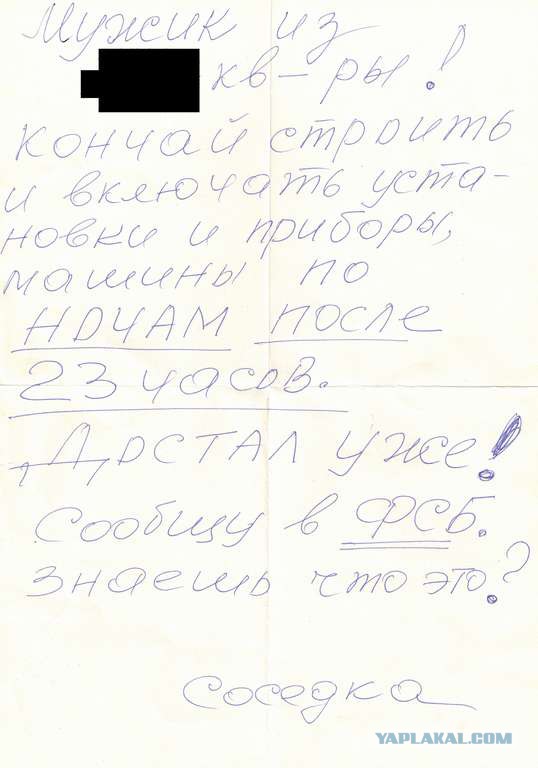 Мужик из
кв-ры!
кончай строить
и включать уста-
новки и приборы,
машины по
НОЧАМ после
23 часов.
ДОСТАЛ уже!
Сообщу в ФСБ.
знаешь что это?
Соседка
YAPLAKAL.COM